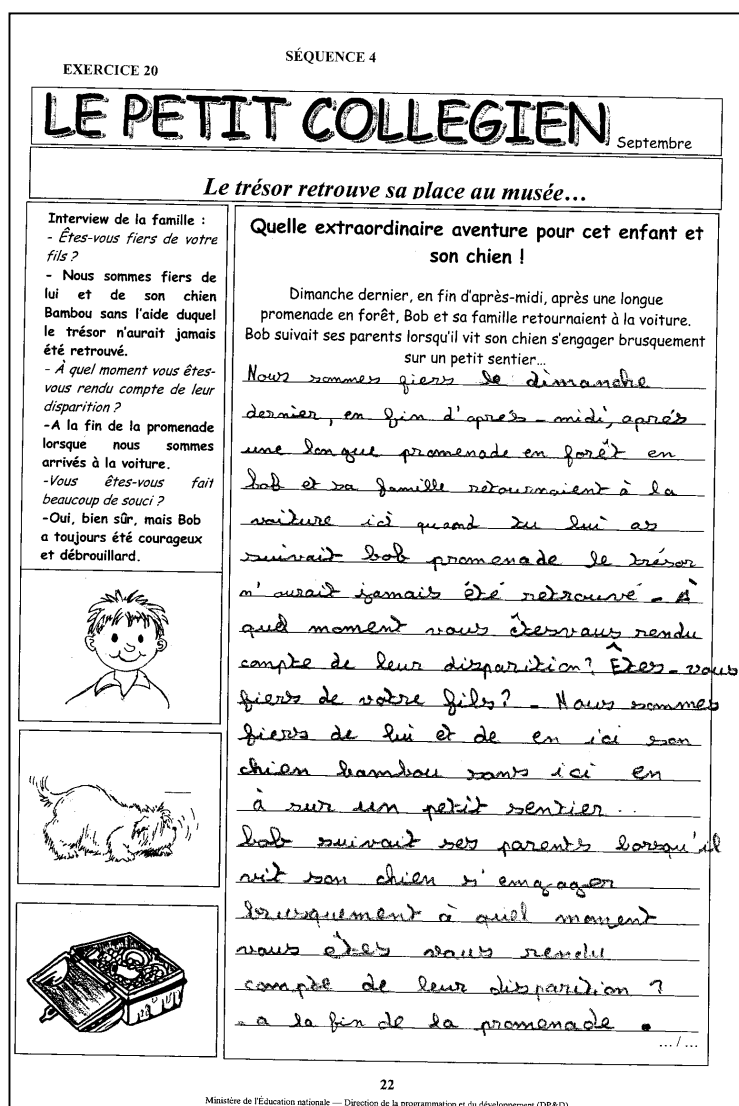 SÉQUENCE 4
EXERCICE 20
LE PETIT COLLEGIEN
Septembre
Le trésor retrouve sa place au musée…
Interview de la famille :
- Êtes-vous fiers de votre
fils ?
- Nous sommes fiers de
lui et de son chien
Bambou sans l'aide duquel
le trésor n'aurait jamais
été retrouvé.
- À quel moment vous êtes-
vous rendu compte de leur
disparition ?
-A la fin de la promenade
lorsque nous sommes
arrivés à la voiture.
-Vous êtes-vous fait
beaucoup de souci ?
-Oui, bien sûr, mais Bob
a toujours été courageux
et débrouillard.
Quelle extraordinaire aventure pour cet enfant et
son chien !
Dimanche dernier, en fin d'après-midi, après une longue
promenade en forêt, Bob et sa famille retournaient à la voiture.
Bob suivait ses parents lorsqu'il vit son chien s'engager brusquement
sur un petit sentier…
Nous sommes fiers le dimanche
dernier, en fin d'après-midi, après
une longue promenade en forêt en
bob et sa famille retournaient à la
voiture ici quand tu lui as
suivait bob promenade le trésor
n'aurait jamais été retrouvé - À
quel moment vous êtesvous rendu
compte de leur disparition? Êtes-vous
fiers de votre fils? - Nous sommes
fiers de lui et de en ici son
chien bambou sans ici en
à sur un petit sentier..
bob suivait ses parents lorsqu'il
vit son chien s'emgager
brusquement à quel moment
vous êtes vous rendu
compte de leur disparition ?
- a la fin de la promenade .
… / …
22
Ministère de l'Éducation nationale — Direction de la programmation et du développement (DP&D)